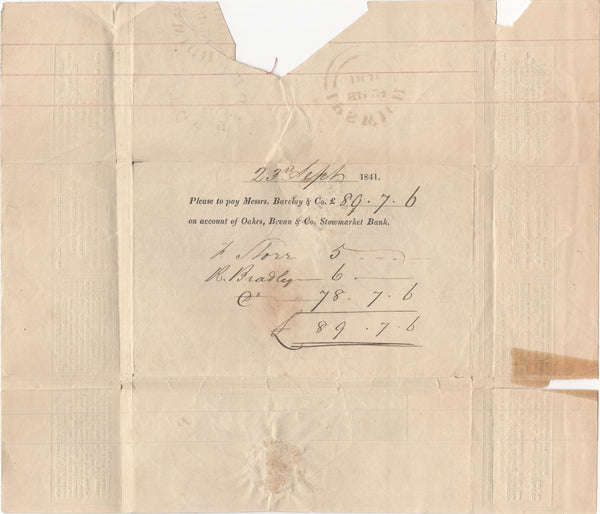 23rd Sept 1841.
Please to pay Messrs. Barclay & Co. £ 89 . 7 . 6
on account of Oakes, Bevan & Co. Stowmarket Bank.
Storr 5 . -
R. Bradley — 6 . —
78 . 7 . 6
£ 89 . 7 . 6
IPSWICH